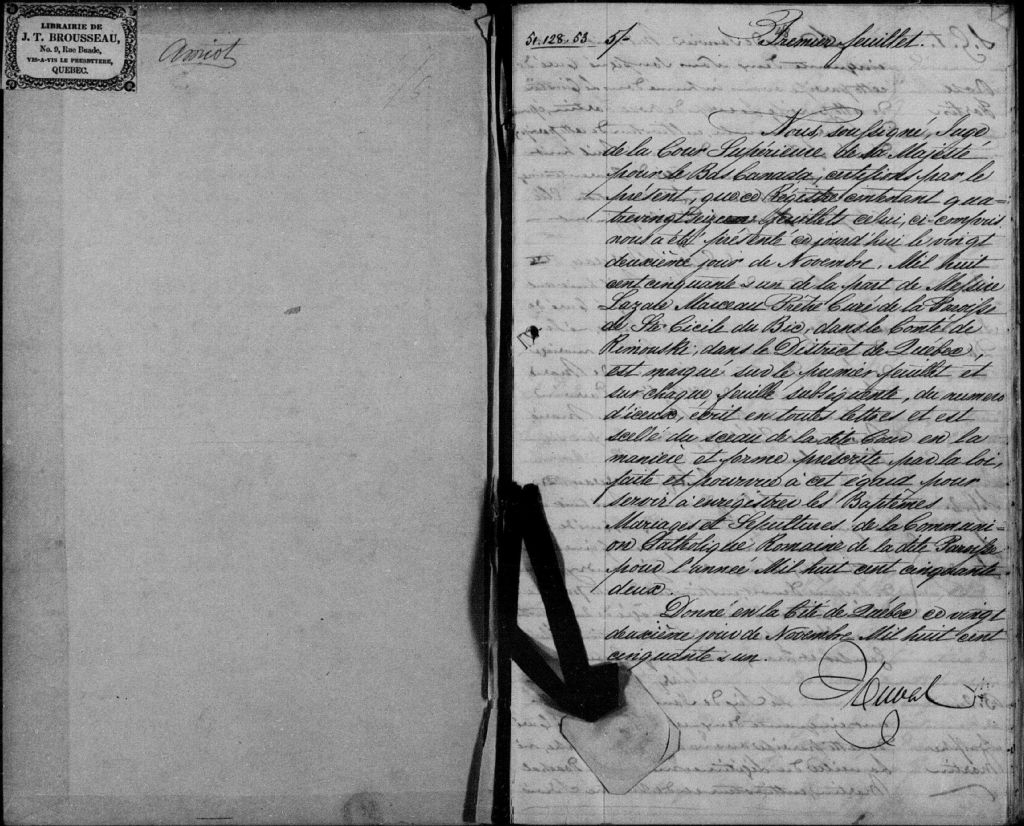 LIBRAIRIE DE
J. T. BROUSSEAU,
No. 9, Rue Buade,
VIS-A-VIS LE PRESBYTERE,
QUEBEC.
51.128.53 5/-
Premier feuillet.
Nous, soussigné, Juge
de la Cour Supérieure de Sa Majesté
pour le Bas Canada, certifions par le
présent, que ce Régistre contenant qua-
trevingt feuillets celui, ci-compris
nous a été présenté ce jourd'hui le vingt
deuxième jour de Novembre, Mil huit
cent cinquante & un de la part de Messire
Lazare Marceau Prêtre Curé de la Paroisse
de Ste Cicile du Bic, dans le Comté de
Rimouski, dans le District de Québec,
est marqué sur le premier feuillet et
sur chaque feuille subséquente, du numero
d'iceux, écrit en toutes lettres et est
scellé du sceau de la dite Cour en la
maniere et forme prescrite par la loi,
faite et pourvue à cet égard pour
servir à enregistrer les Baptêmes
Mariages et Sépultures de la Communi-
on Catholique Romaine de la dite Paroisse
pour l'année Mil huit cent cinquante
deux.
Donné en la Cité de Québec ce vingt
deuxième jour de Novembre Mil huit cent
cinquante & un.
Duval